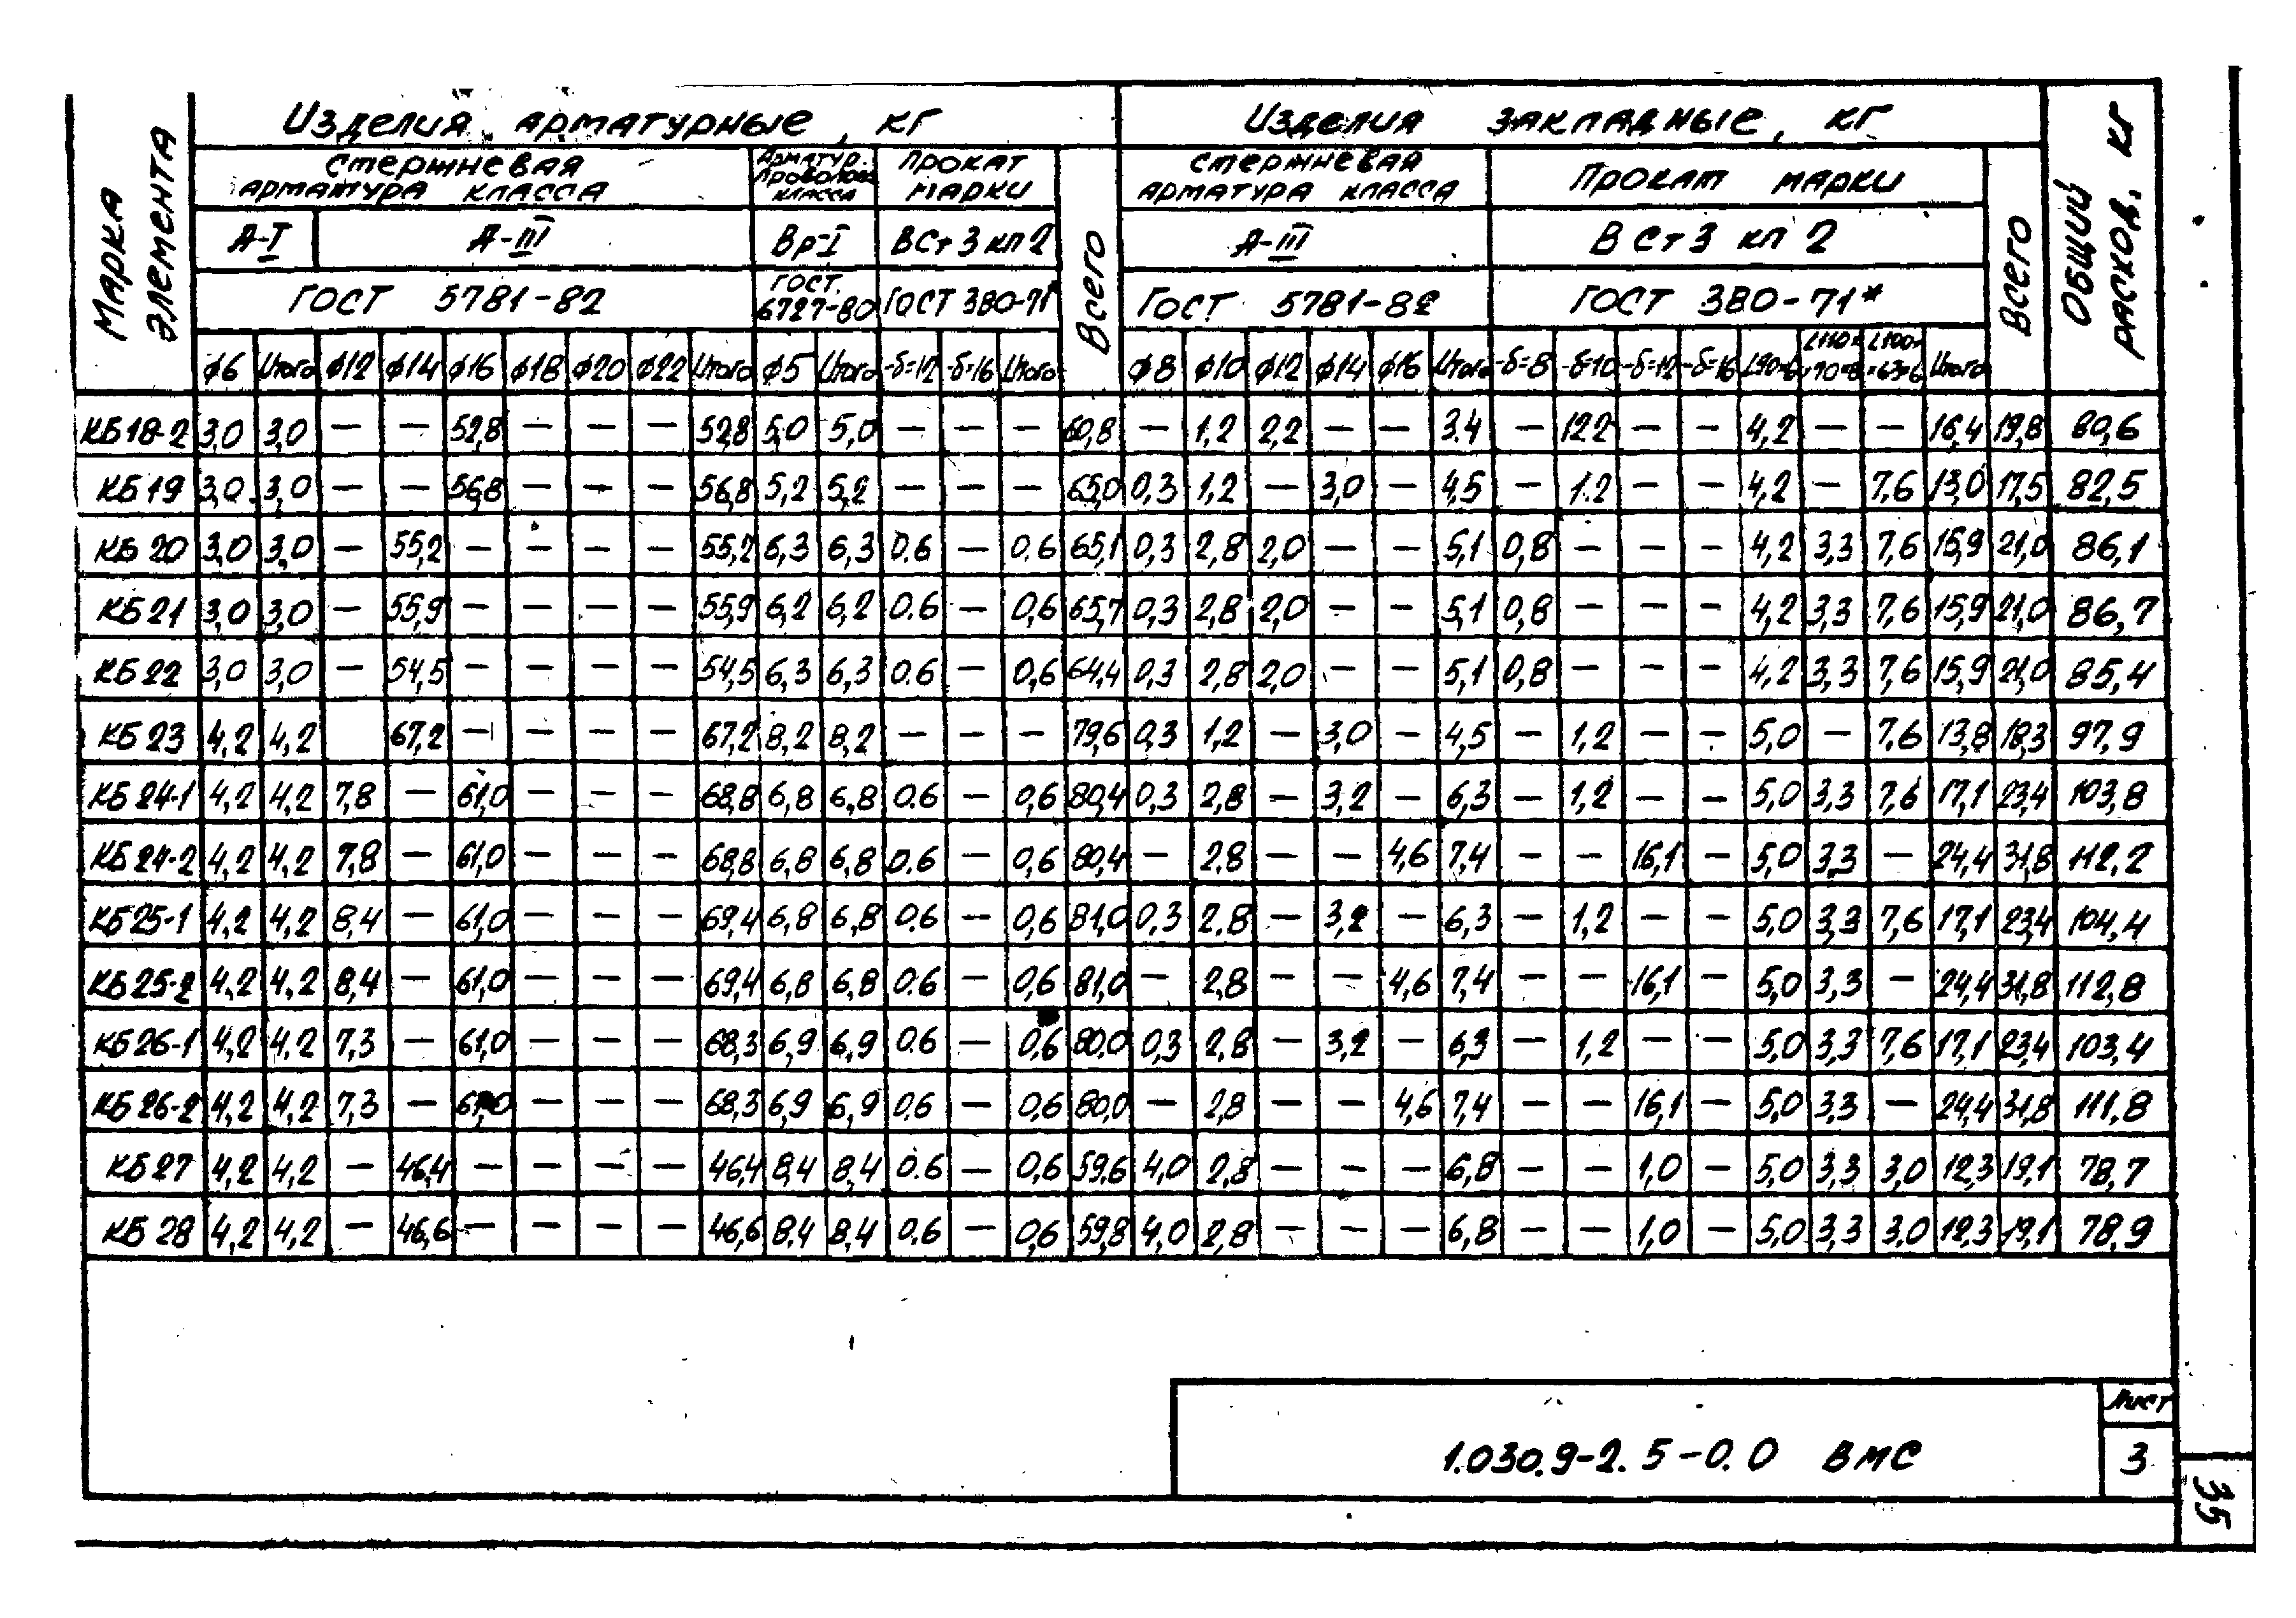 Марка элемента
Изделия арматурные, кг
Изделия закладные, кг
Общий расход, кг
стержневая арматура класса
Арматур. проволока класса
Прокат марки
Всего
стержневая арматура класса
Прокат марки
Всего
А-I А-III Вр-I ВСт3кп2 А-III ВСт3 кп2
ГОСТ 5781-82 ГОСТ. 6727-80 ГОСТ 380-71* ГОСТ 5781-82 ГОСТ 380-71*
ф6 Итого ф12 ф14 ф16 ф18 ф20 ф22 Итого ф5 Итого -δ=12 -δ=16 Итого ф8 ф10 ф12 ф14 ф16 Итого -δ=8 -δ=10 -δ=12 -δ=16 L90×6 L110××70×8 L100××63×6 Итого
КБ18-2 3,0 3,0 — — 52,8 — — — 52,8 5,0 5,0 — — — 60,8 — 1,2 2,2 — — 3.4 — 12,2 — — 4,2 — — 16,4 19,8 80,6
КБ19 3,0 3,0 — — 56,8 — — — 56,8 5,2 5,2 — — — 65,0 0,3 1,2 — 3,0 — 4,5 — 1.2 — — 4,2 — 7,6 13,0 17,5 82,5
КБ 20 3,0 3,0 — 55,2 — — — — 55,2 6,3 6,3 0.6 — 0,6 65,1 0,3 2,8 2,0 — — 5,1 0,8 — — — 4,2 3,3 7,6 15,9 21,0 86,1
КБ21 3,0 3,0 — 55,9 — — — — 55,9 6,2 6,2 0.6 — 0,6 65,7 0,3 2,8 2,0 — — 5,1 0,8 — — — 4,2 3,3 7,6 15,9 21,0 86,7
КБ22 3,0 3,0 — 54,5 — — — — 54,5 6,3 6,3 0.6 — 0,6 64,4 0,3 2,8 2,0 — — 5,1 0,8 — — — 4,2 3,3 7,6 15,9 21,0 85,4
КБ23 4,2 4,2 67,2 — — — — 67,2 8,2 8,2 — — — 79,6 0,3 1,2 — 3,0 — 4,5 — 1,2 — — 5,0 — 7,6 13,8 18,3 97,9
КБ24-1 4,2 4,2 7,8 — 61,0 — — — 68,8 6,8 6,8 0.6 — 0,6 80,4 0,3 2,8 — 3,2 — 6,3 — 1,2 — — 5,0 3,3 7,6 17,1 23,4 103,8
КБ24-2 4,2 4,2 7,8 — 61,0 — — — 68,8 6,8 6,8 0.6 — 0,6 80,4 — 2,8 — — 4,6 7,4 — — 16,1 — 5,0 3,3 — 24,4 31,8 112,2
КБ25-1 4,2 4,2 8,4 — 61,0 — — — 69,4 6,8 6,8 0.6 — 0,6 81,0 0,3 2.8 — 3,2 — 6,3 — 1,2 — — 5,0 3,3 7,6 17,1 23,4 104,4
КБ25-2 4,2 4,2 8,4 — 61,0 — — — 69,4 6,8 6,8 0.6 — 0,6 81,0 — 2,8 — — 4,6 7,4 — — 16,1 — 5,0 3,3 — 24,4 31,8 112,8
КБ26-1 4,2 4,2 7,3 — 61,0 — — — 68,3 6,9 6,9 0.6 — 0,6 80,0 0,3 2,8 — 3,2 — 6,3 — 1,2 — — 5,0 3,3 7,6 17,1 23,4 103,4
КБ26-2 4,2 4,2 7,3 — 61,0 — — — 68,3 6,9 6,9 0.6 — 0,6 80,0 — 2,8 — — 4,6 7,4 — — 16,1 — 5,0 3,3 — 24,4 31,8 111,8
КБ27 4,2 4,2 — 46,4 — — — — 46,4 8,4 8,4 0.6 — 0,6 59,6 4,0 2,8 — — — 6,8 — — 1,0 — 5,0 3,3 3,0 12,3 19,1 78,7
КБ 28 4,2 4,2 — 46,6 — — — — 46,6 8,4 8,4 0.6 — 0,6 59,8 4,0 2,8 — — — 6,8 — — 1,0 — 5,0 3,3 3,0 12,3 19,1 78,9
1.030.9-2. 5-0.0 ВМС
Лист
3
35